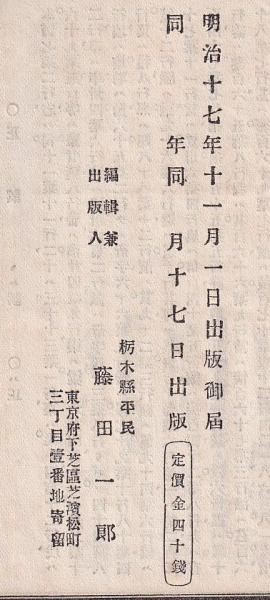 明治十七年十一月一日出版御届
同年同月十七日出版
定價金四十錢
編輯兼
出版人
栃木縣平民
藤田一郎
東京府下芝區芝濱松町
三丁目壹番地寄留